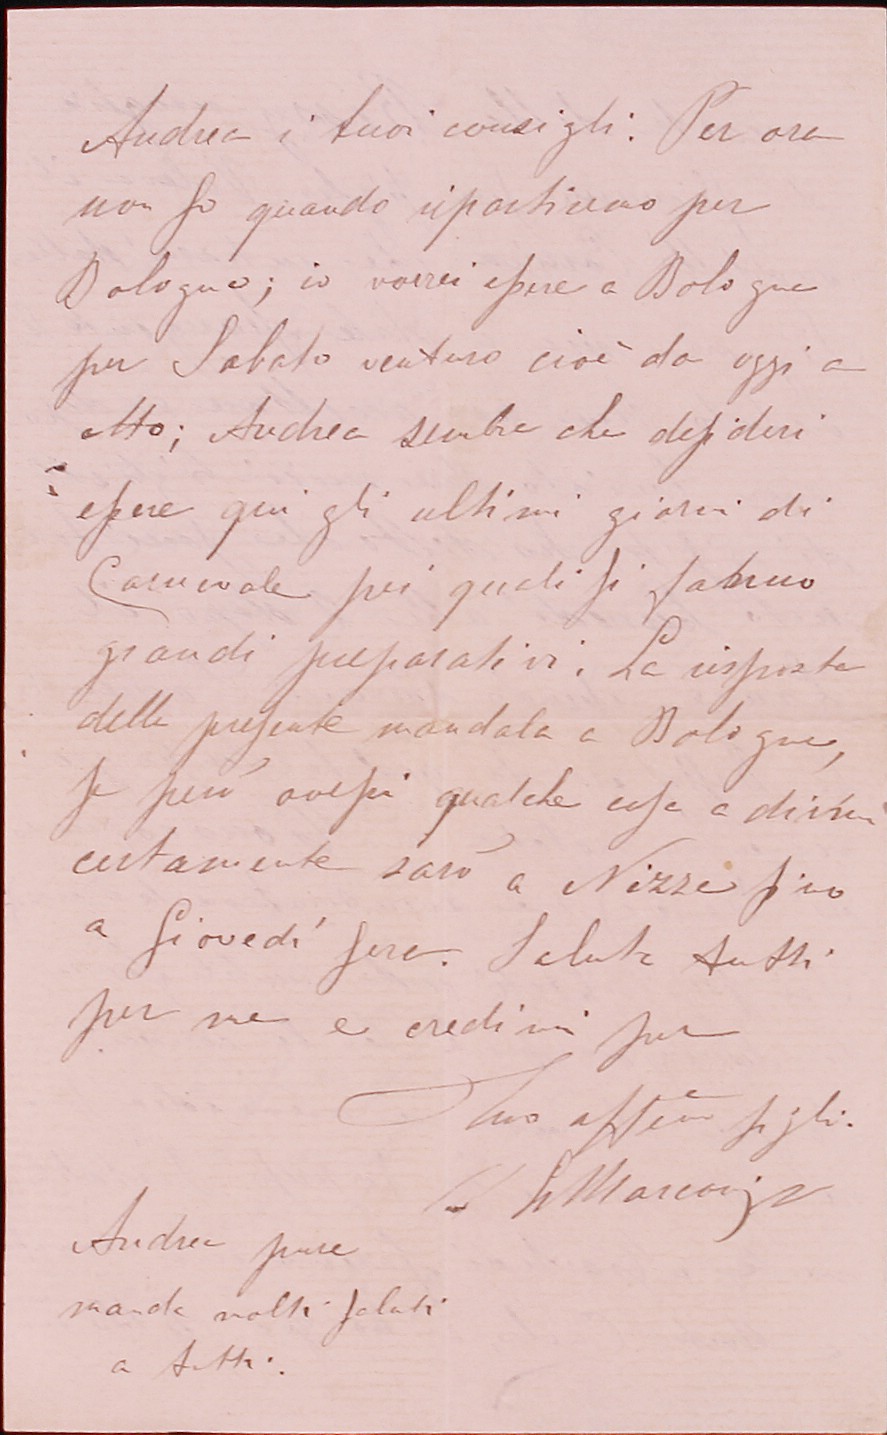 Andrea i tuoi consigli. Per ora
non so quando ripartiremo per
Bologna; io vorrei essere a Bologna
per Sabato venturo cioè da oggi a
otto; Andrea sembra che desideri
essere qui gli ultimi giorni di
Carnevale pei quali si fanno
grandi preparativi. La risposta
della presente mandala a Bologna,
se però avessi qualche cosa a dirmi
certamente sarò a Nizza fino
a Giovedì sera. Saluta tutti
per me e credimi per
Tuo affmo figli.
Marcovigi
Andrea pure
manda molti saluti
a tutti.